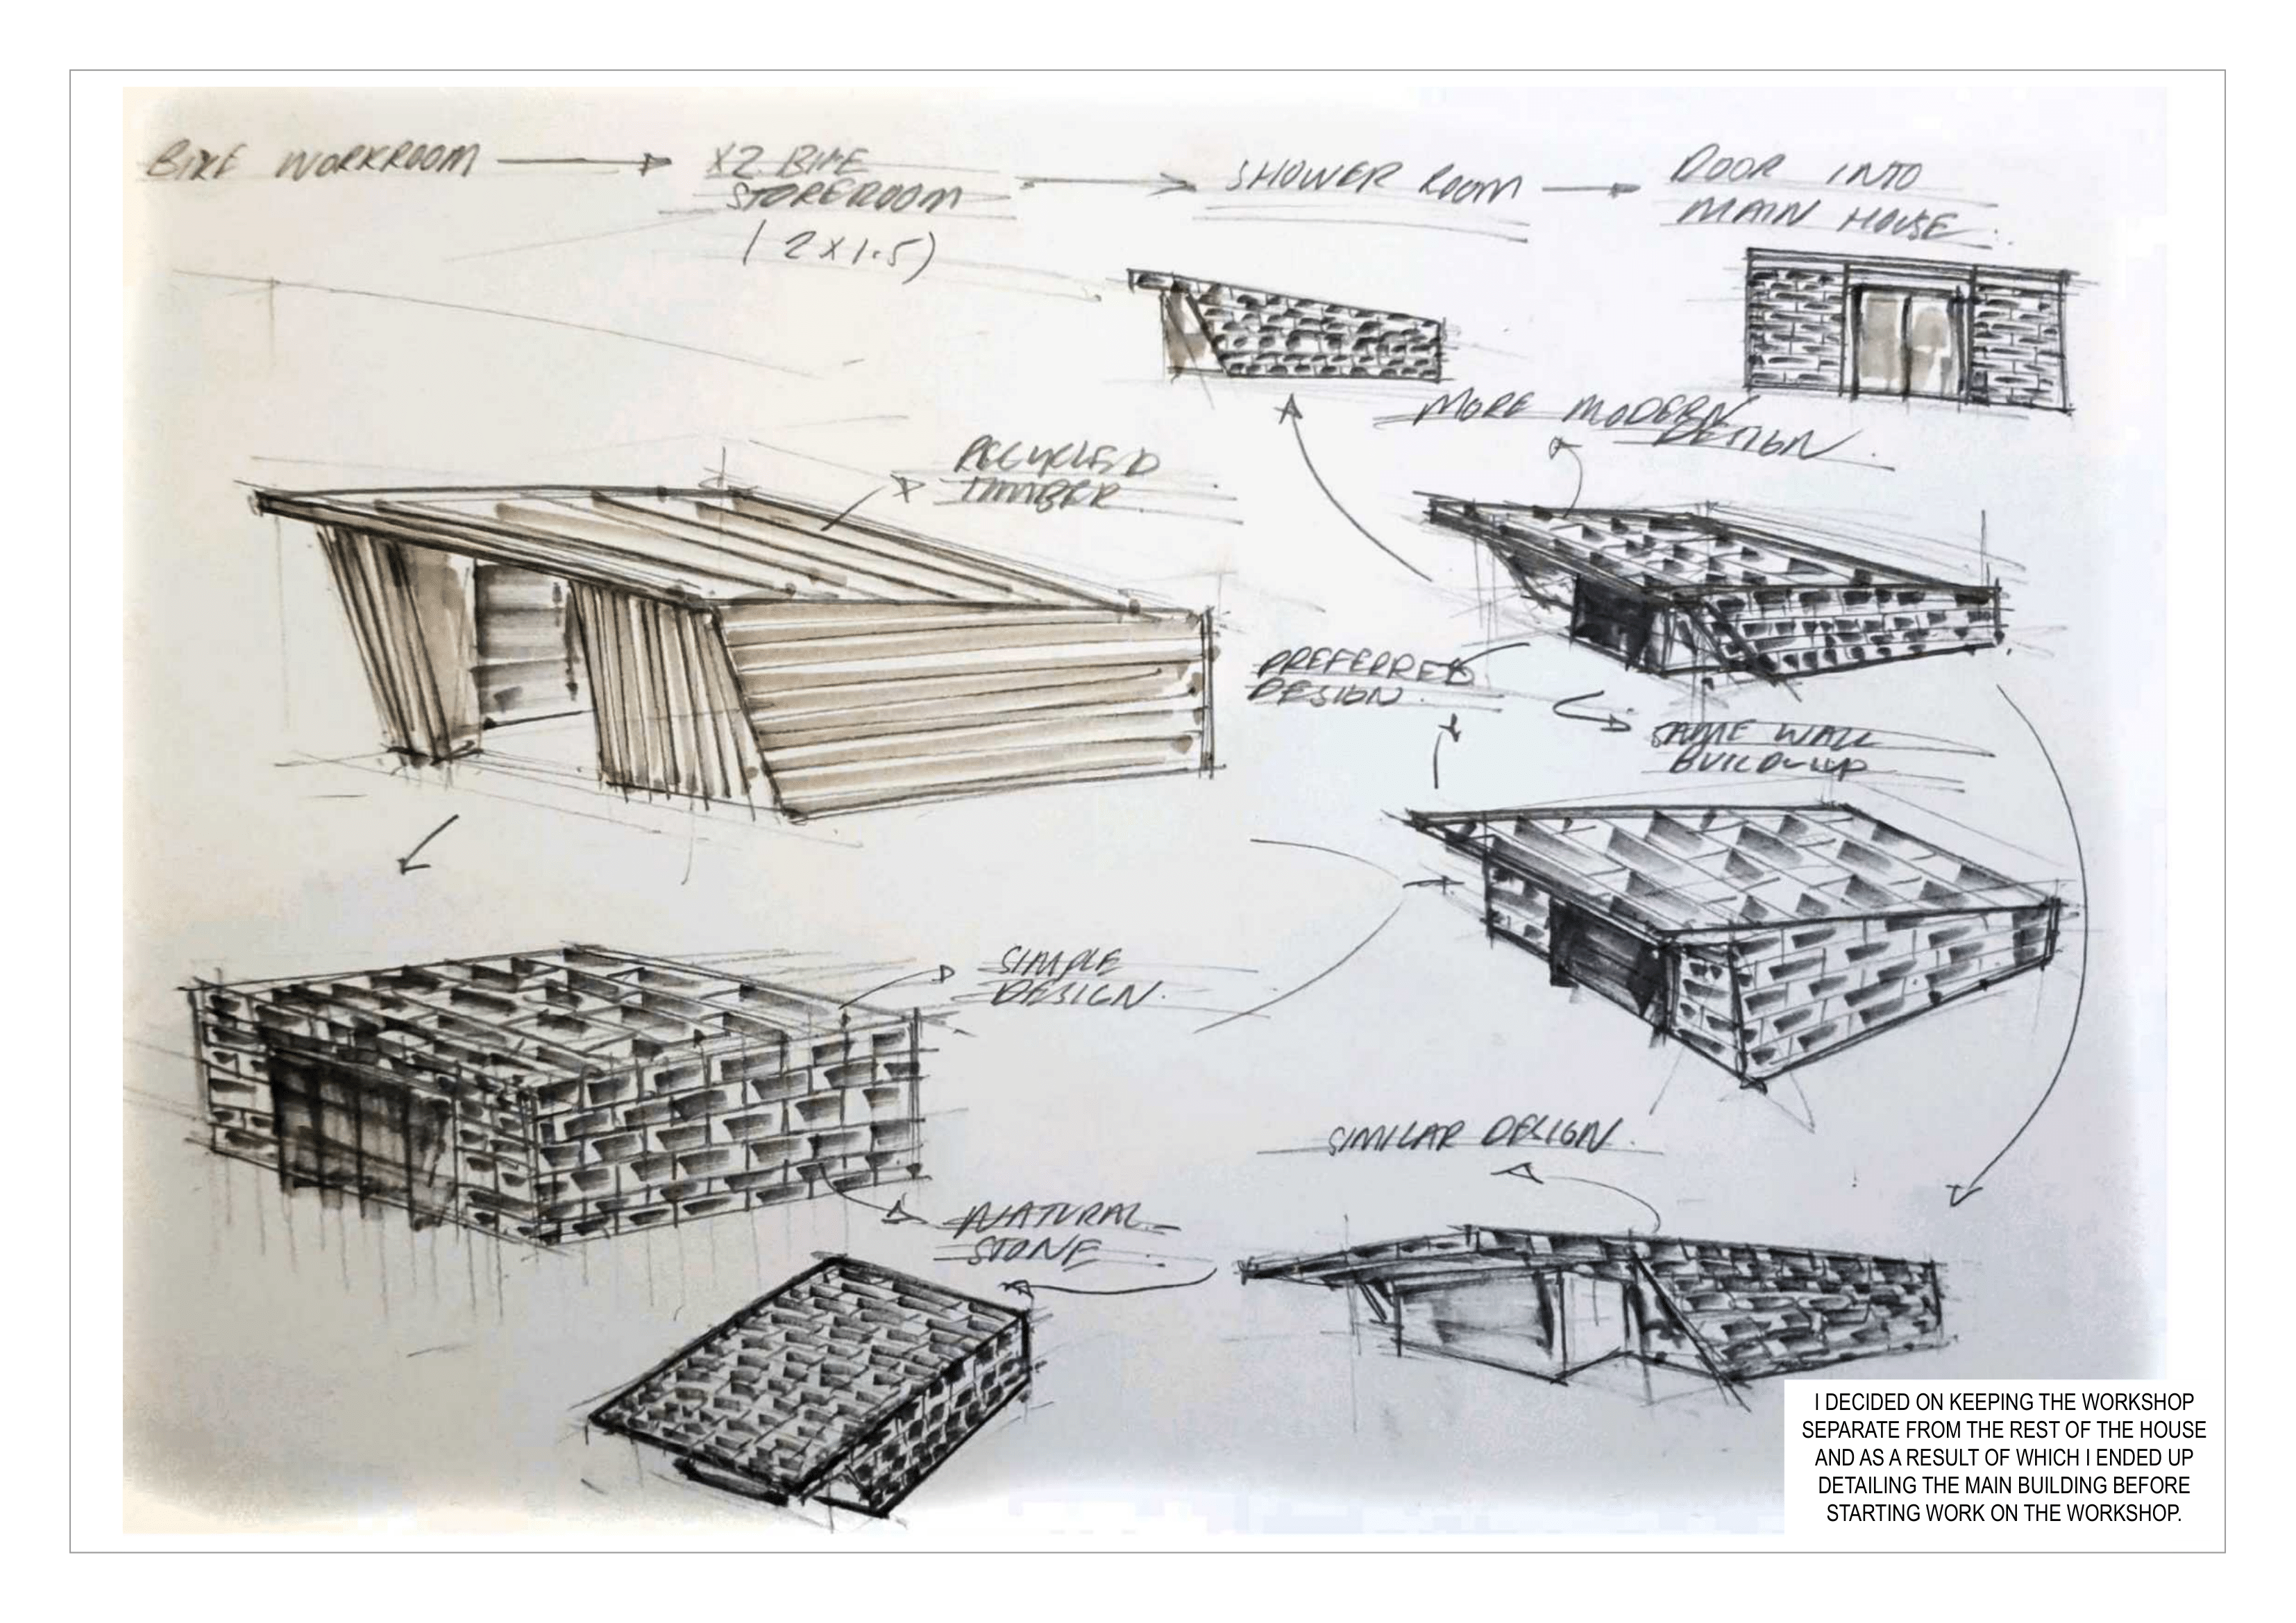 BIKE WORKROOM
X2 BIKE
STOREROOM
(2X1.5)
SHOWER ROOM
DOOR INTO
MAIN HOUSE.
MORE MODERN
DESIGN.
RECYCLED
TIMBER
PREFERRED
DESIGN.
SAME WALL
BUILD-UP
SIMPLE
DESIGN.
SIMILAR DESIGN.
NATURAL
STONE
I DECIDED ON KEEPING THE WORKSHOP
SEPARATE FROM THE REST OF THE HOUSE
AND AS A RESULT OF WHICH I ENDED UP
DETAILING THE MAIN BUILDING BEFORE
STARTING WORK ON THE WORKSHOP.